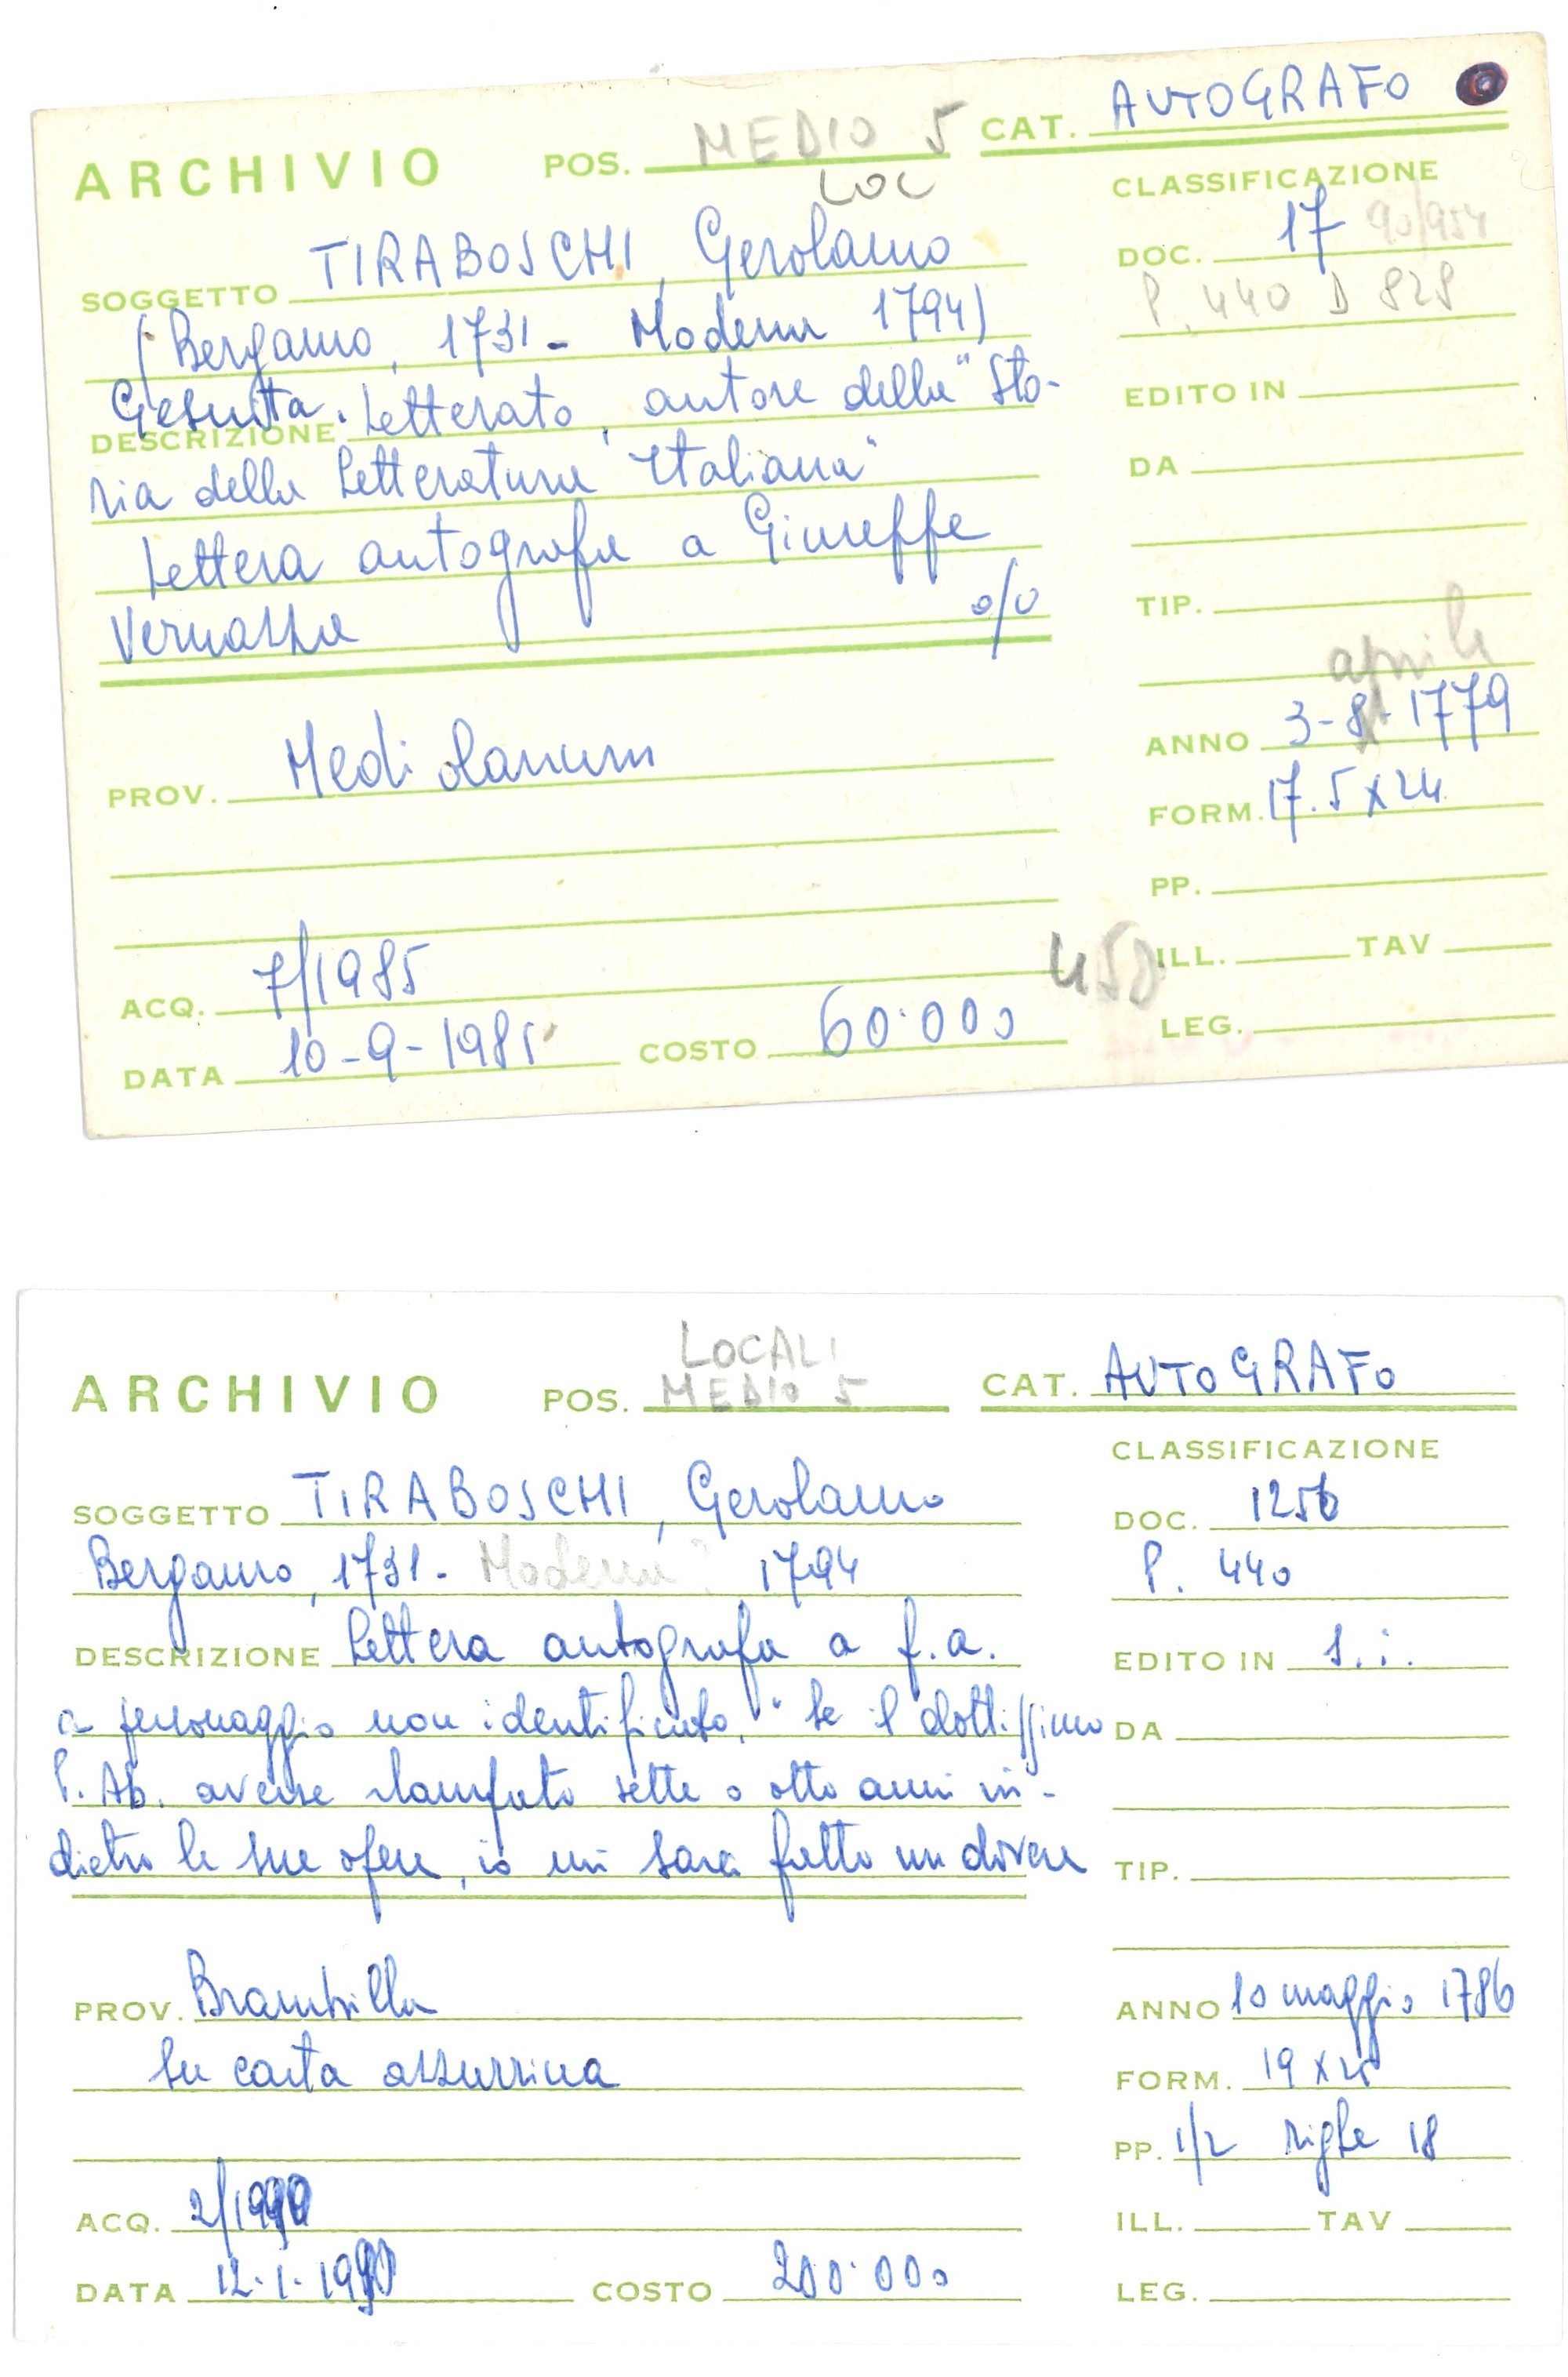 ARCHIVIO POS. MEDIO 5 CAT. AUTOGRAFO
LOC
CLASSIFICAZIONE
SOGGETTO TIRABOSCHI, Gerolamo
DOC. 17 90/954
P. 440 D 828
(Bergamo, 1731 - Modena 1794)
Gesuita. Letterato, autore della "Sto-
DESCRIZIONE
EDITO IN
ria della Letteratura Italiana"
DA
Lettera autografa a Giuseppe
Vernazza o/o
TIP.
aprile
PROV. Mediolanum
ANNO 3-8-1779
FORM. 17.5 x 24
PP.
450
ILL. TAV
ACQ. 7/1985
DATA 10-9-1985 COSTO 60.000
LEG.
LOCALI
ARCHIVIO POS. MEDIO 5 CAT. AUTOGRAFO
CLASSIFICAZIONE
SOGGETTO TIRABOSCHI, Gerolamo
DOC. 1256
Bergamo, 1731 - Modena? 1794
P. 440
DESCRIZIONE Lettera autografa a f.a.
EDITO IN s.i.
a personaggio non identificato, "Se il dottissimo
DA
P. Ab. avesse stampato sette o otto anni in-
dietro le sue opere, io mi sarei fatto un dovere
TIP.
PROV. Brambilla
ANNO 10 maggio 1786
su carta azzurrina
FORM. 19 x 25
PP. 1/2 righe 18
ACQ. 2/1990
ILL. TAV
DATA 12.1.1990 COSTO 200.000
LEG.